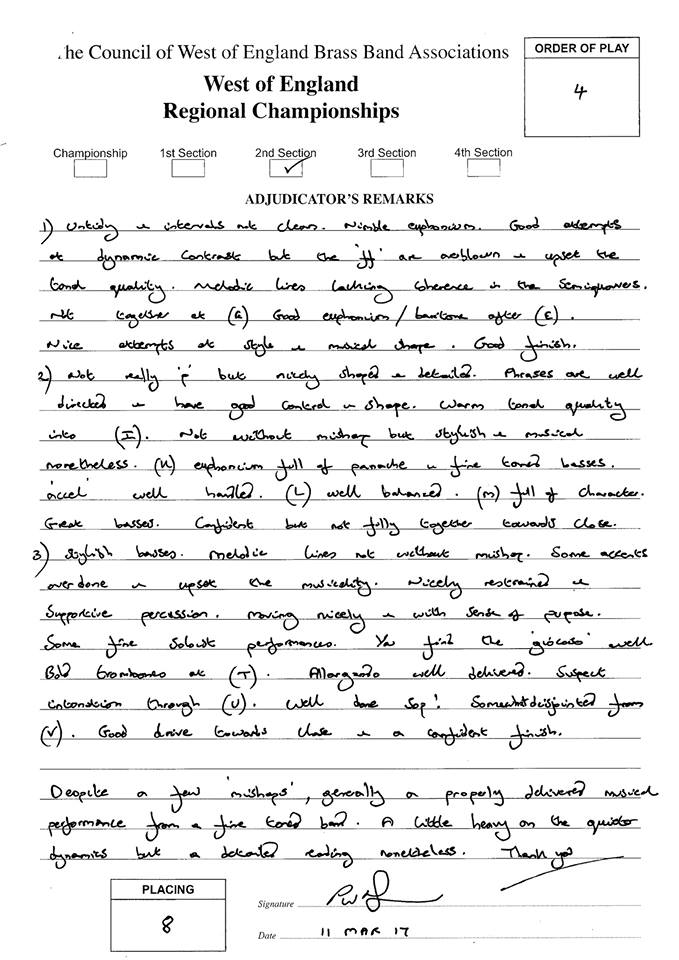 .he Council of West of England Brass Band Associations
West of England
Regional Championships
ORDER OF PLAY
4
Championship 1st Section 2nd Section 3rd Section 4th Section
ADJUDICATOR'S REMARKS
1) Untidy & intervals not clean. Nimble euphonium. Good attempts
at dynamic contrast but the 'ff' are overblown & upset the
tonal quality. Melodic lines lacking coherence in the semiquavers.
Not together at (E) Good euphonium / baritone after (E).
Nice attempts at style & musical shape. Good finish.
2) Not really 'p' but nicely shaped & detailed. Phrases are well
directed & have good control & shape. Warm tonal quality
into (I). Not without mishap but stylish & musical
nonetheless. (K) euphonium full of panache & fine toned basses.
'accel' well handled. (L) well balanced. (M) full of character.
Great basses. Confident but not fully together towards close.
3) Stylish basses. Melodic lines not without mishap. Some accents
overdone & upset the musicality. Nicely restrained &
supportive percussion. Moving nicely & with sense of pupose.
Some fine soloist performances. You find the 'giocoso' well
Bold trombones at (T). Allargando well delivered. Suspect
intonation through (U). Well done Sop! Somewhat disjointed from
(V). Good drive towards close & a confident finish.
Despite a few 'mishaps', generally a properly delivered musical
performance from a fine toned band. A little heavy on the quieter
dynamics but a detailed reading nonetheless. Thank you
PLACING
8
Signature
Date 11 MAR 17